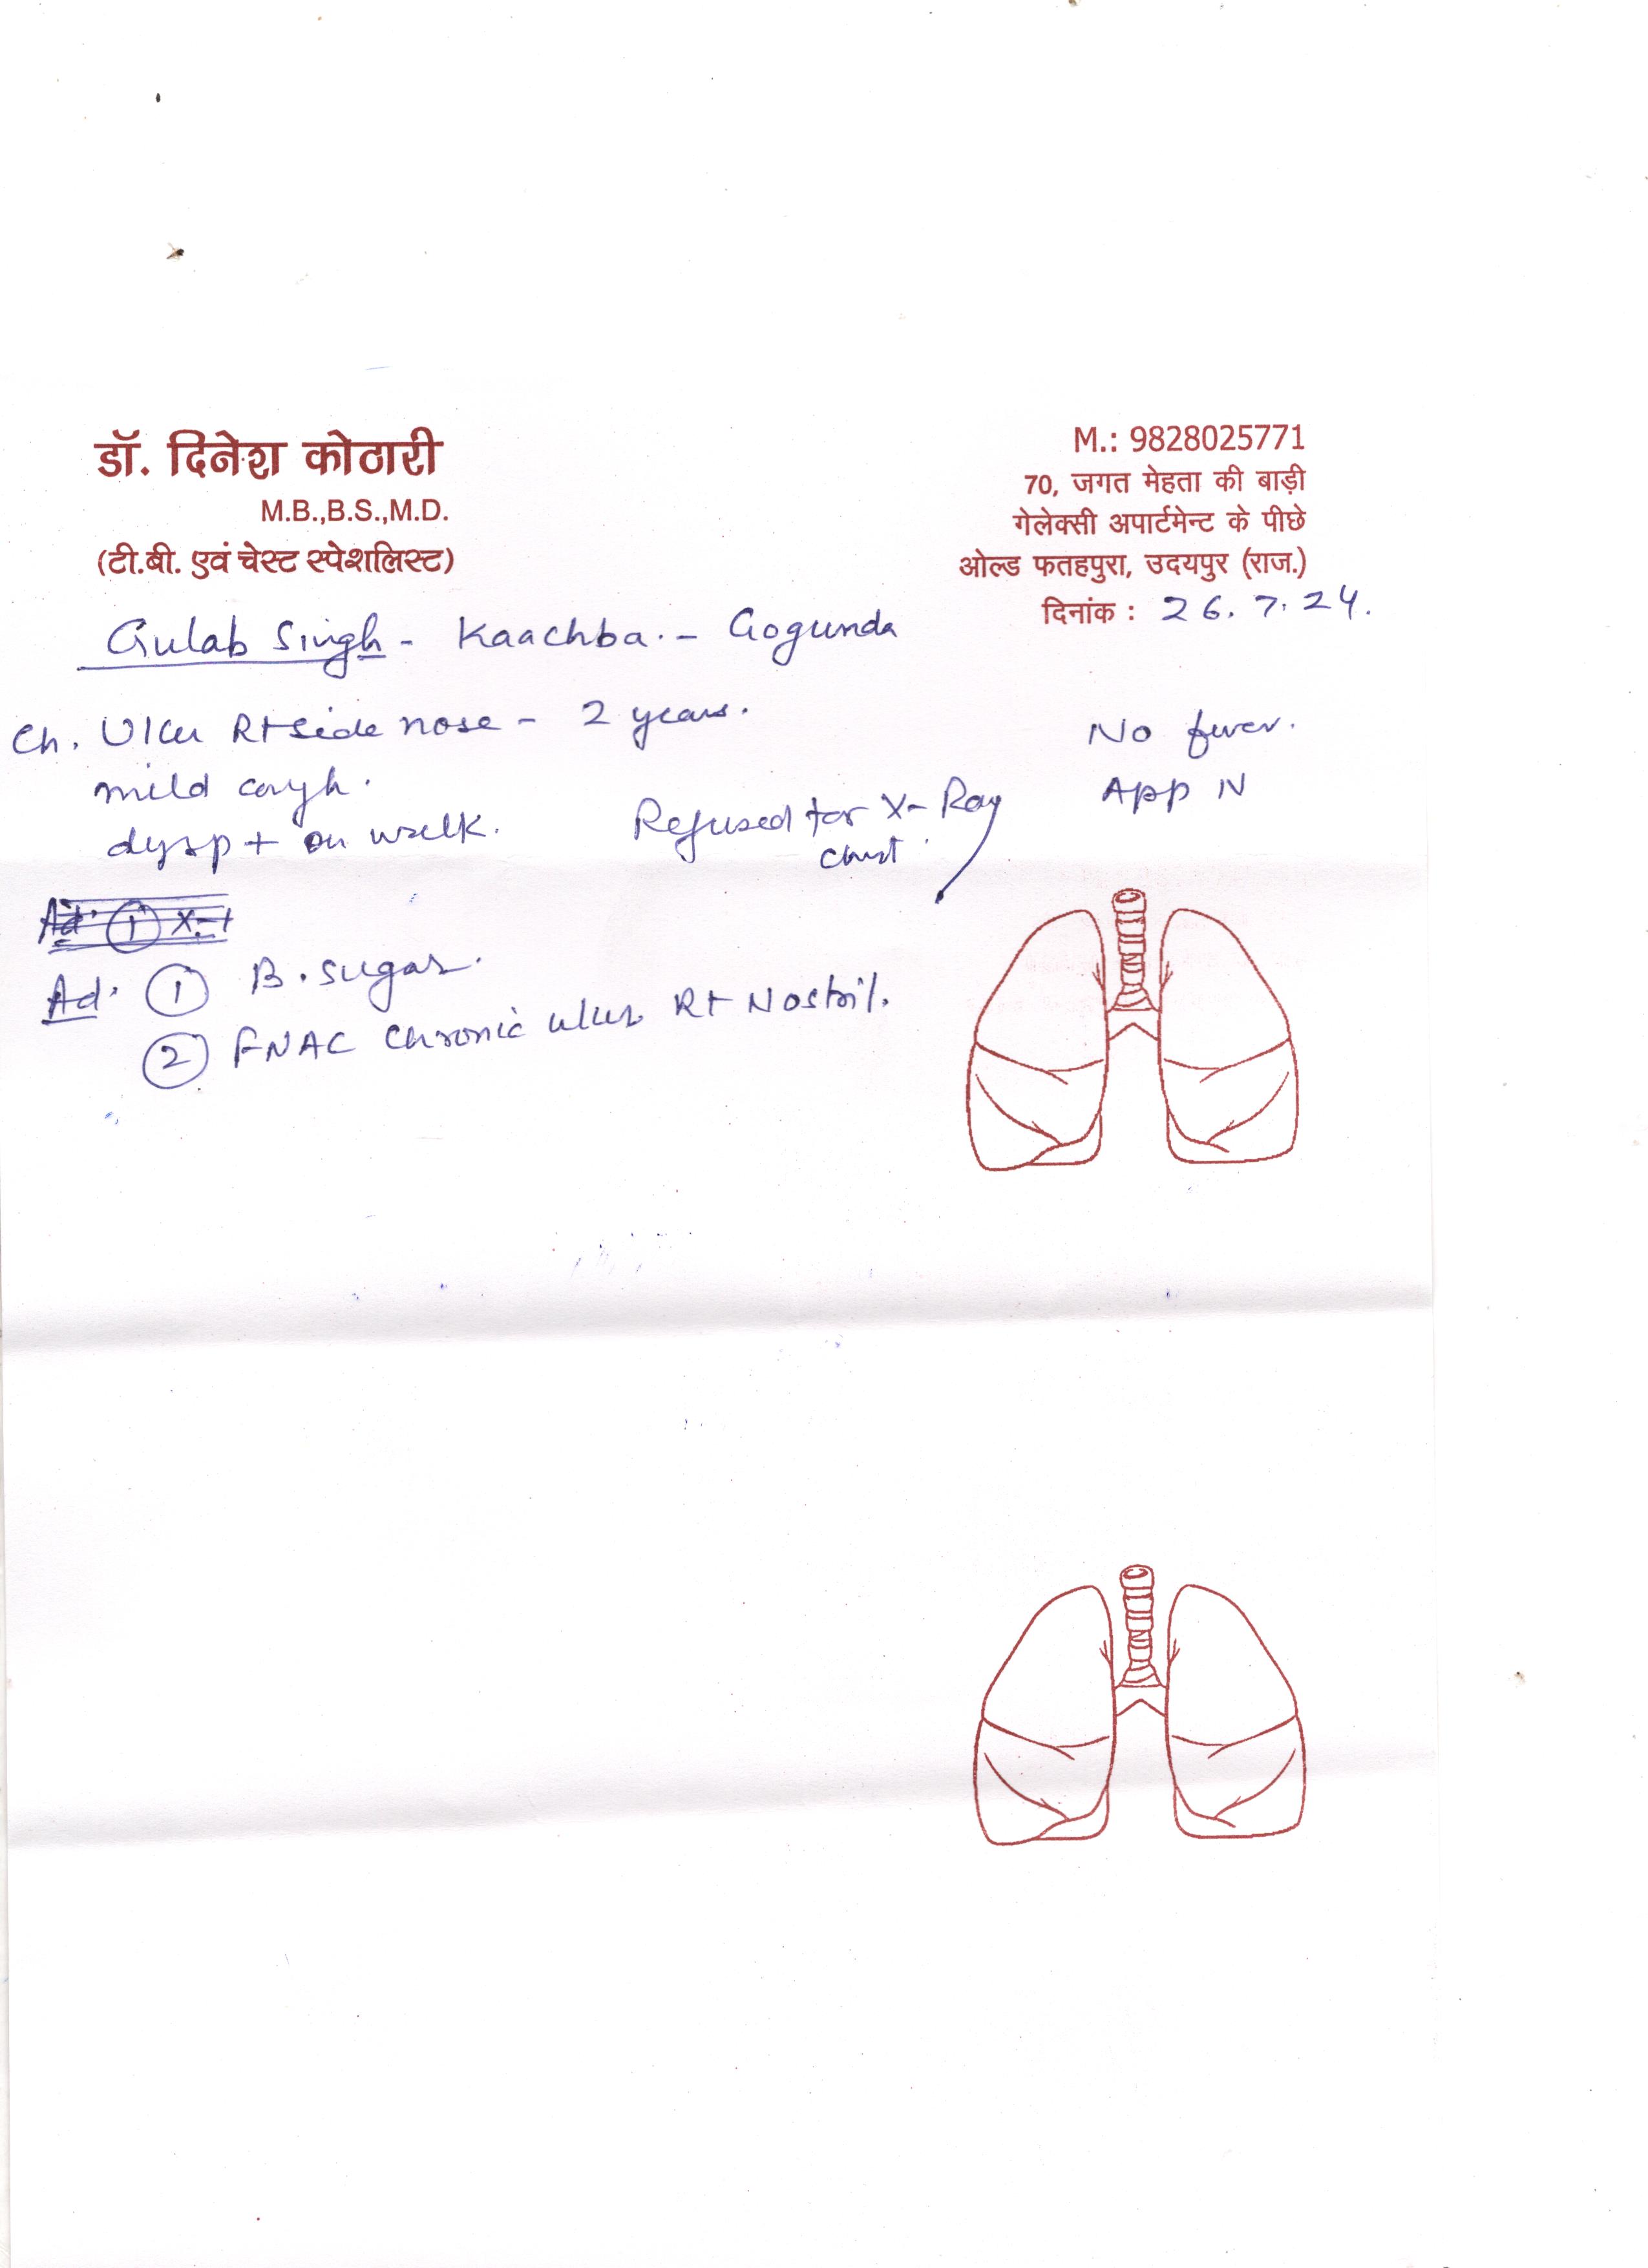 डॉ. दिनेश कोठारी
M.B.,B.S.,M.D.
(टी.बी. एवं चेस्ट स्पेशलिस्ट)
M.: 9828025771
70, जगत मेहता की बाड़ी
गेलेक्सी अपार्टमेन्ट के पीछे
ओल्ड फतहपुरा, उदयपुर (राज.)
दिनांक : 26.7.24.
Gulab Singh - Kaachba. - Gogunda
Ch. Ulcer Rt side nose - 2 years.
mild cough.
dysp + on walk.
No fever.
App N
Refused for X-Ray
chest
Ad. ① X-
Ad. ① B. sugar.
② FNAC Chronic ulcer Rt Nostril.